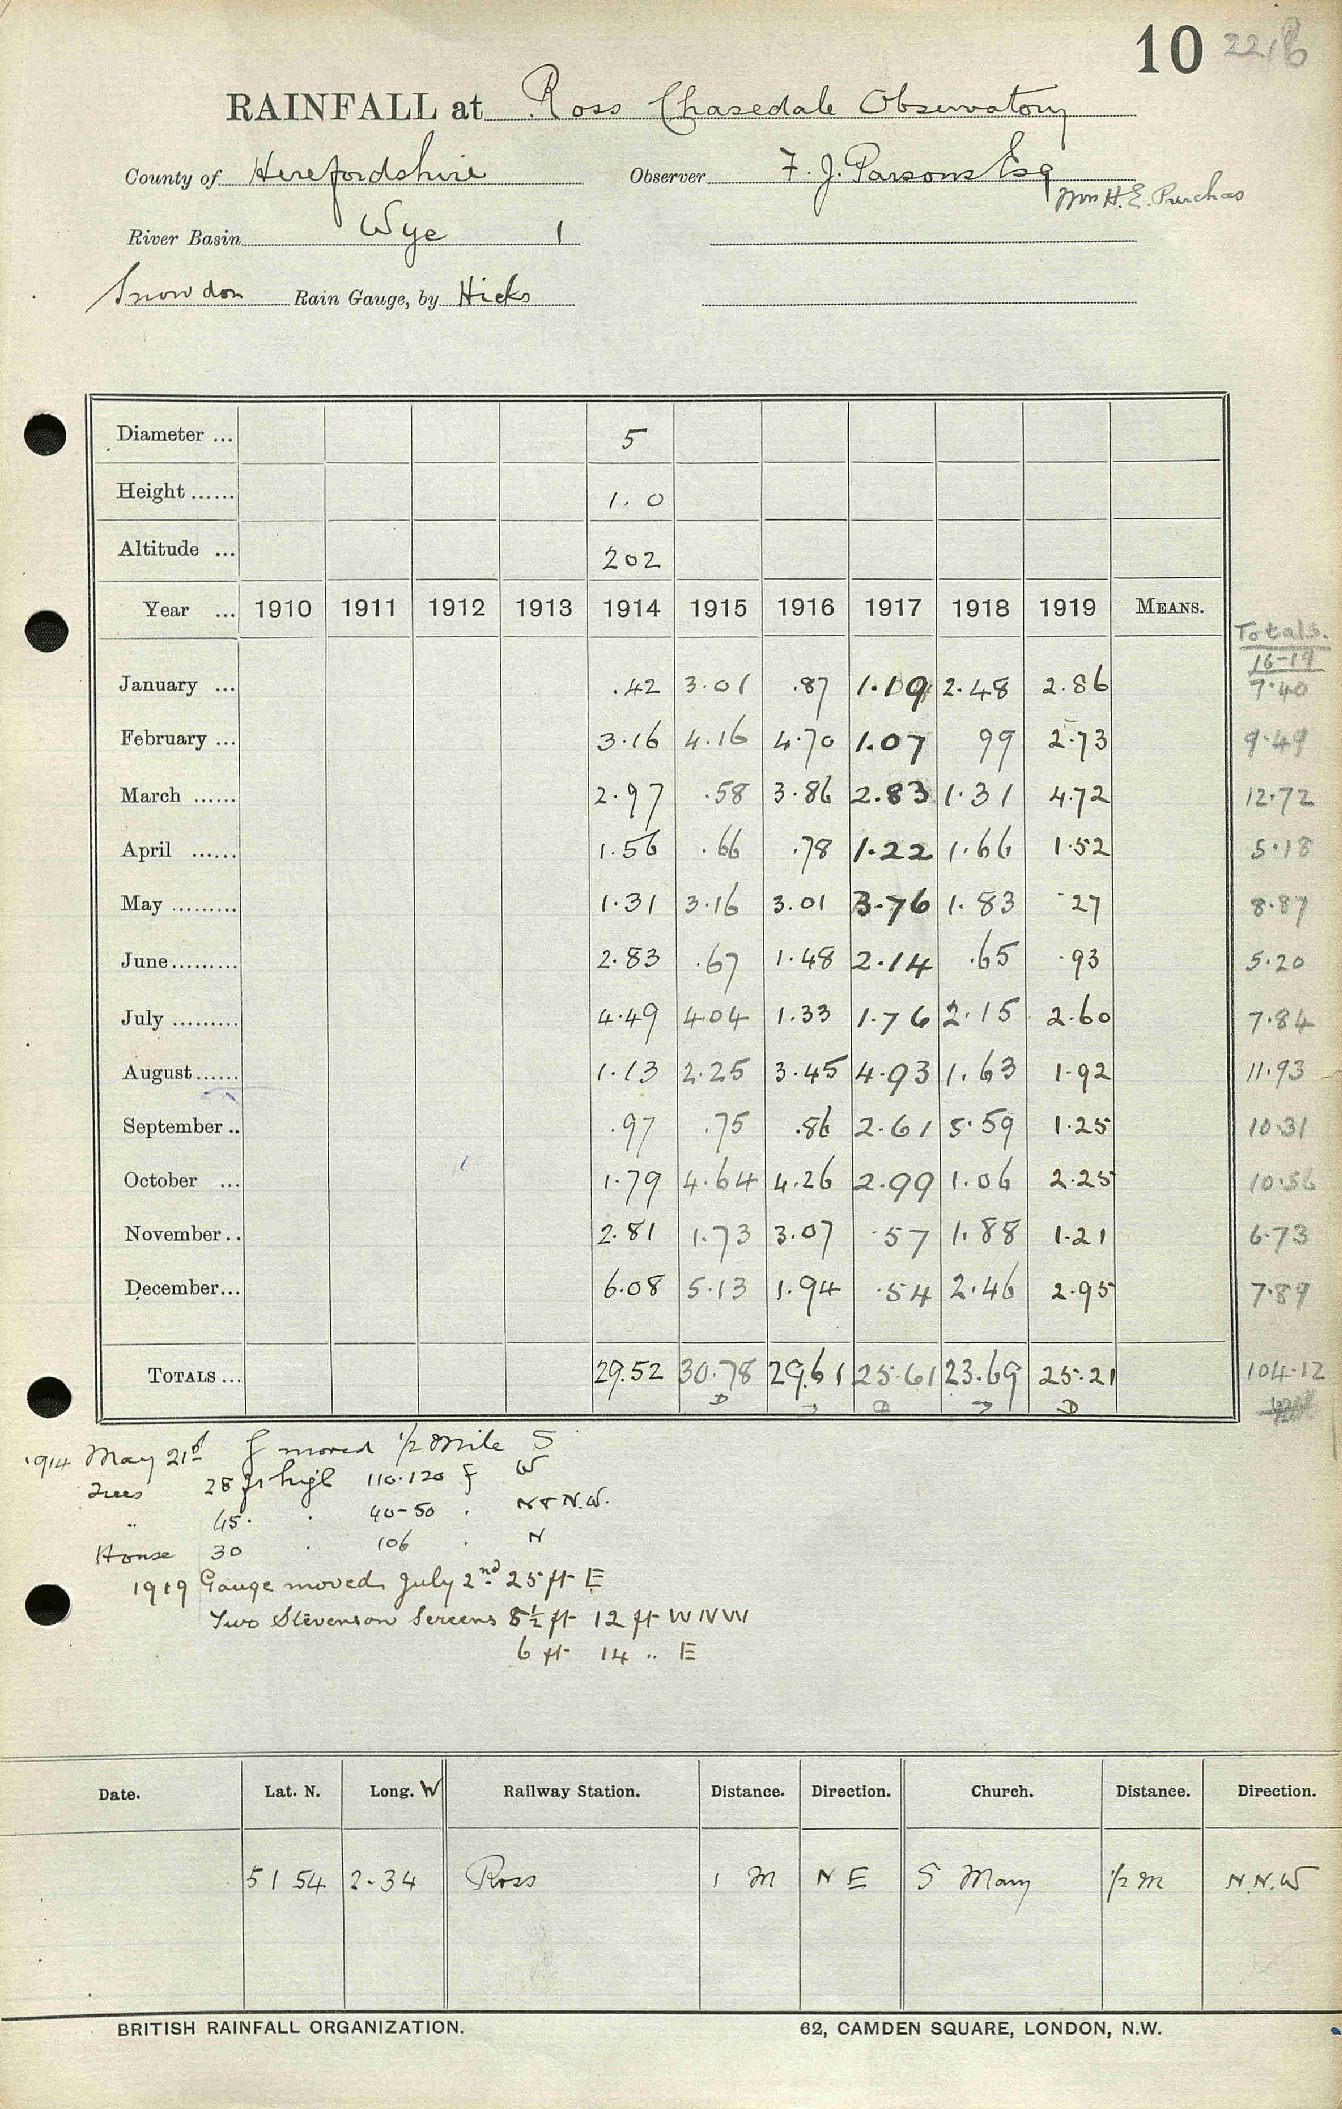 10 2216
RAINFALL at Ross Chasedale Observatory
County of Herefordshire Observer F. J. Parsons Esq
Mrs H. E. Purchas
River Basin Wye 1
Snowdon Rain Gauge, by Hicks
Diameter ... 5
Height ...... 1.0
Altitude ... 202
Year ... 1910 1911 1912 1913 1914 1915 1916 1917 1918 1919 MEANS.
Totals.
16-19
January ... .42 3.01 .87 1.19 2.48 2.86 7.40
February ... 3.16 4.16 4.70 1.07 99 2.73 9.49
March ...... 2.97 .58 3.86 2.83 1.31 4.72 12.72
April ...... 1.56 .66 .78 1.22 1.66 1.52 5.18
May ......... 1.31 3.16 3.01 3.76 1.83 .27 8.87
June ......... 2.83 .67 1.48 2.14 .65 .93 5.20
July ......... 4.49 4.04 1.33 1.76 2.15 2.60 7.84
August ...... 1.13 2.25 3.45 4.93 1.63 1.92 11.93
September .. .97 .75 .86 2.61 5.59 1.25 10.31
October ... 1.79 4.64 4.26 2.99 1.06 2.25 10.56
November .. 2.81 1.73 3.07 .57 1.88 1.21 6.73
December ... 6.08 5.13 1.94 .54 2.46 2.95 7.89
TOTALS ... 29.52 30.78 29.61 25.61 23.69 25.21 104.12
1914 May 21st g moved 1/2 Mile S
Trees 28 ft high 110-120 f W
.. 45 . 40-50 . N & N.W.
House 30 . 106 . N
1919 Gauge moved July 2nd 25 ft E
Two Stevenson Screens 8½ ft 12 ft WNW
6 ft 14 .. E
Date. Lat. N. Long. W Railway Station. Distance. Direction. Church. Distance. Direction.
51 54 2-34 Ross 1 M N E S Mary 1/2 M N.N.W
BRITISH RAINFALL ORGANIZATION. 62, CAMDEN SQUARE, LONDON, N.W.